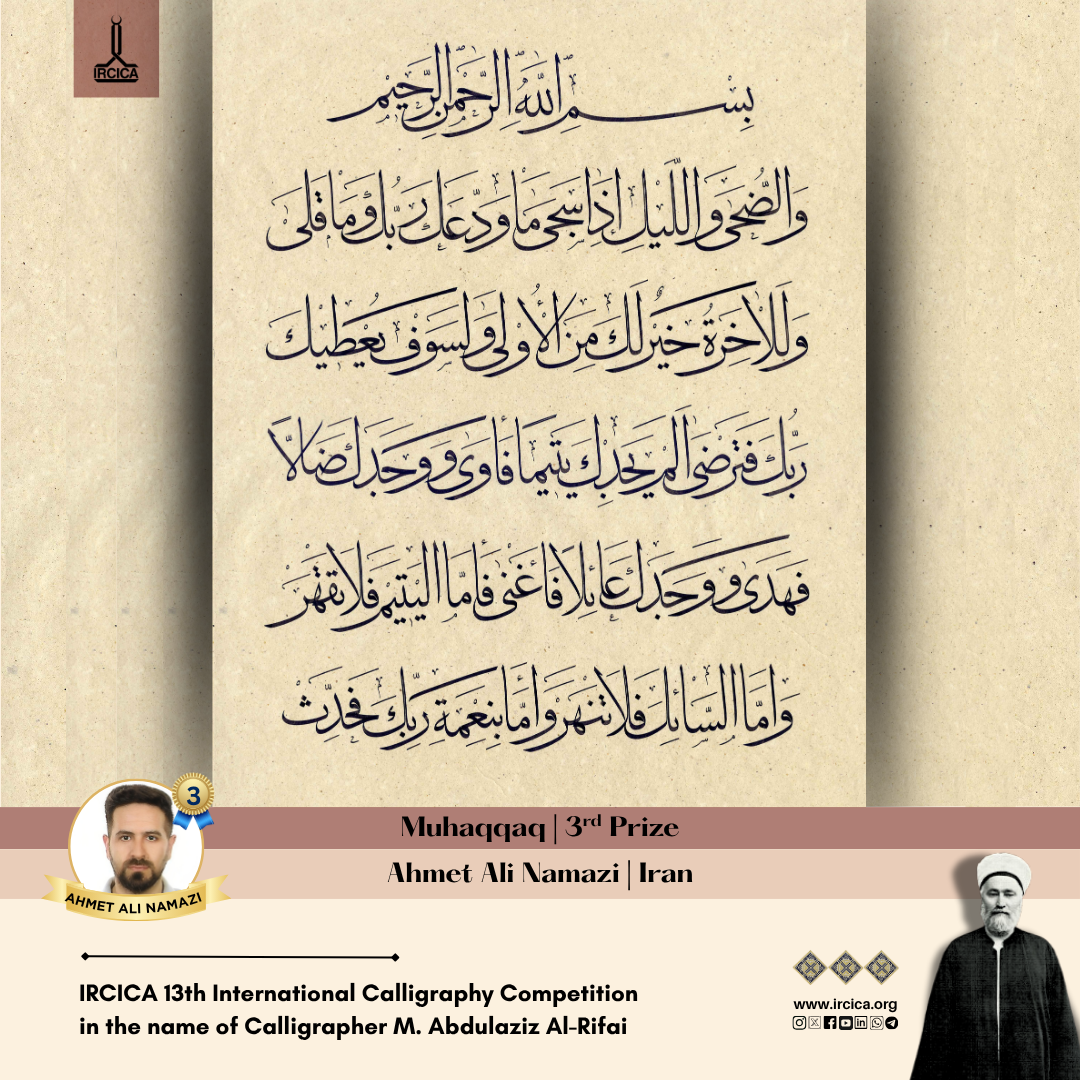 IRCICA
بِسْمِ اللّٰهِ الرَّحْمٰنِ الرَّحِيْمِ
وَالضُّحٰى وَاللَّيْلِ اِذَا سَجٰى مَا وَدَّعَكَ رَبُّكَ وَمَا قَلٰى
وَلَلْاٰخِرَةُ خَيْرٌ لَكَ مِنَ الْاُولٰى وَلَسَوْفَ يُعْطِيْكَ
رَبُّكَ فَتَرْضٰى اَلَمْ يَجِدْكَ يَتِيْمًا فَاٰوٰى وَوَجَدَكَ ضَالًّا
فَهَدٰى وَوَجَدَكَ عَائِلًا فَاَغْنٰى فَاَمَّا الْيَتِيْمَ فَلَا تَقْهَرْ
وَاَمَّا السَّائِلَ فَلَا تَنْهَرْ وَاَمَّا بِنِعْمَةِ رَبِّكَ فَحَدِّثْ
3
Muhaqqaq | 3rd Prize
Ahmet Ali Namazi | Iran
AHMET ALI NAMAZI
IRCICA 13th International Calligraphy Competition
in the name of Calligrapher M. Abdulaziz Al-Rifai
www.ircica.org